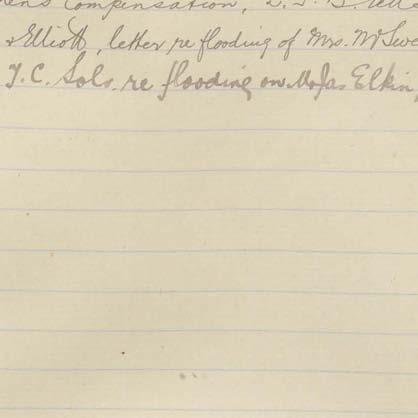 Compensation,
& Elliott, letter re flooding of Mrs. McSwe
T. C. Sols. re flooding on Mr Jas Elkin